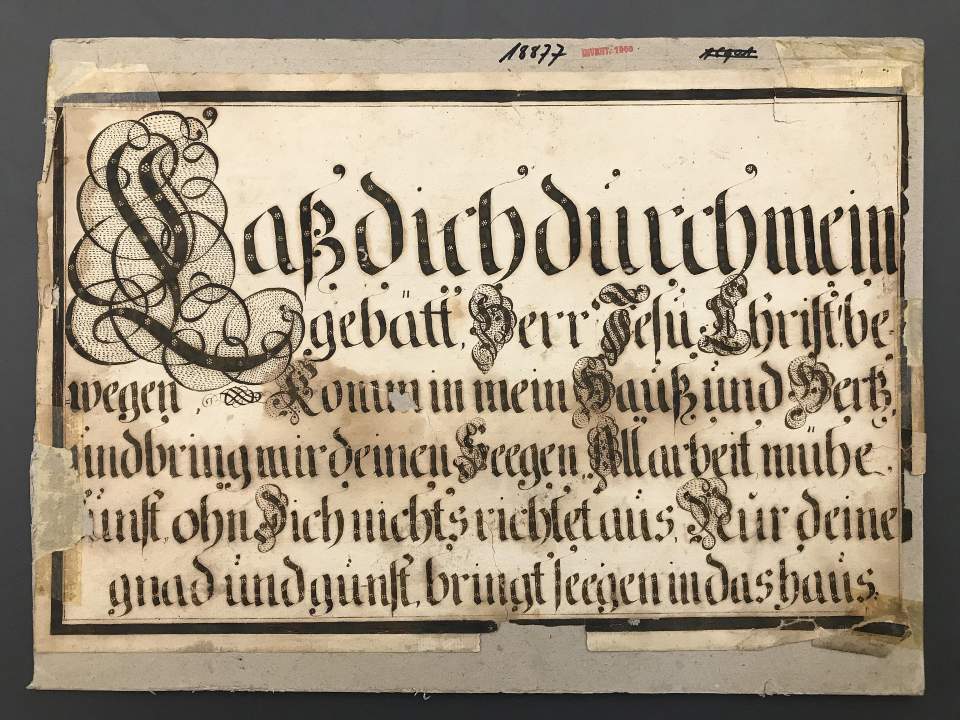 18877 INVENT. 1960
Laß dich dürch mein
gebätt, Herr Jesü Christ be-
wegen, Komm in mein Hauß ünd Hertz,
ündbring mir deinen Seegen, All arbeit mühe
künst, ohn Dich nichts richtet aüs, Nür deine
gnad ünd günst, bringt seegen in das haüs.